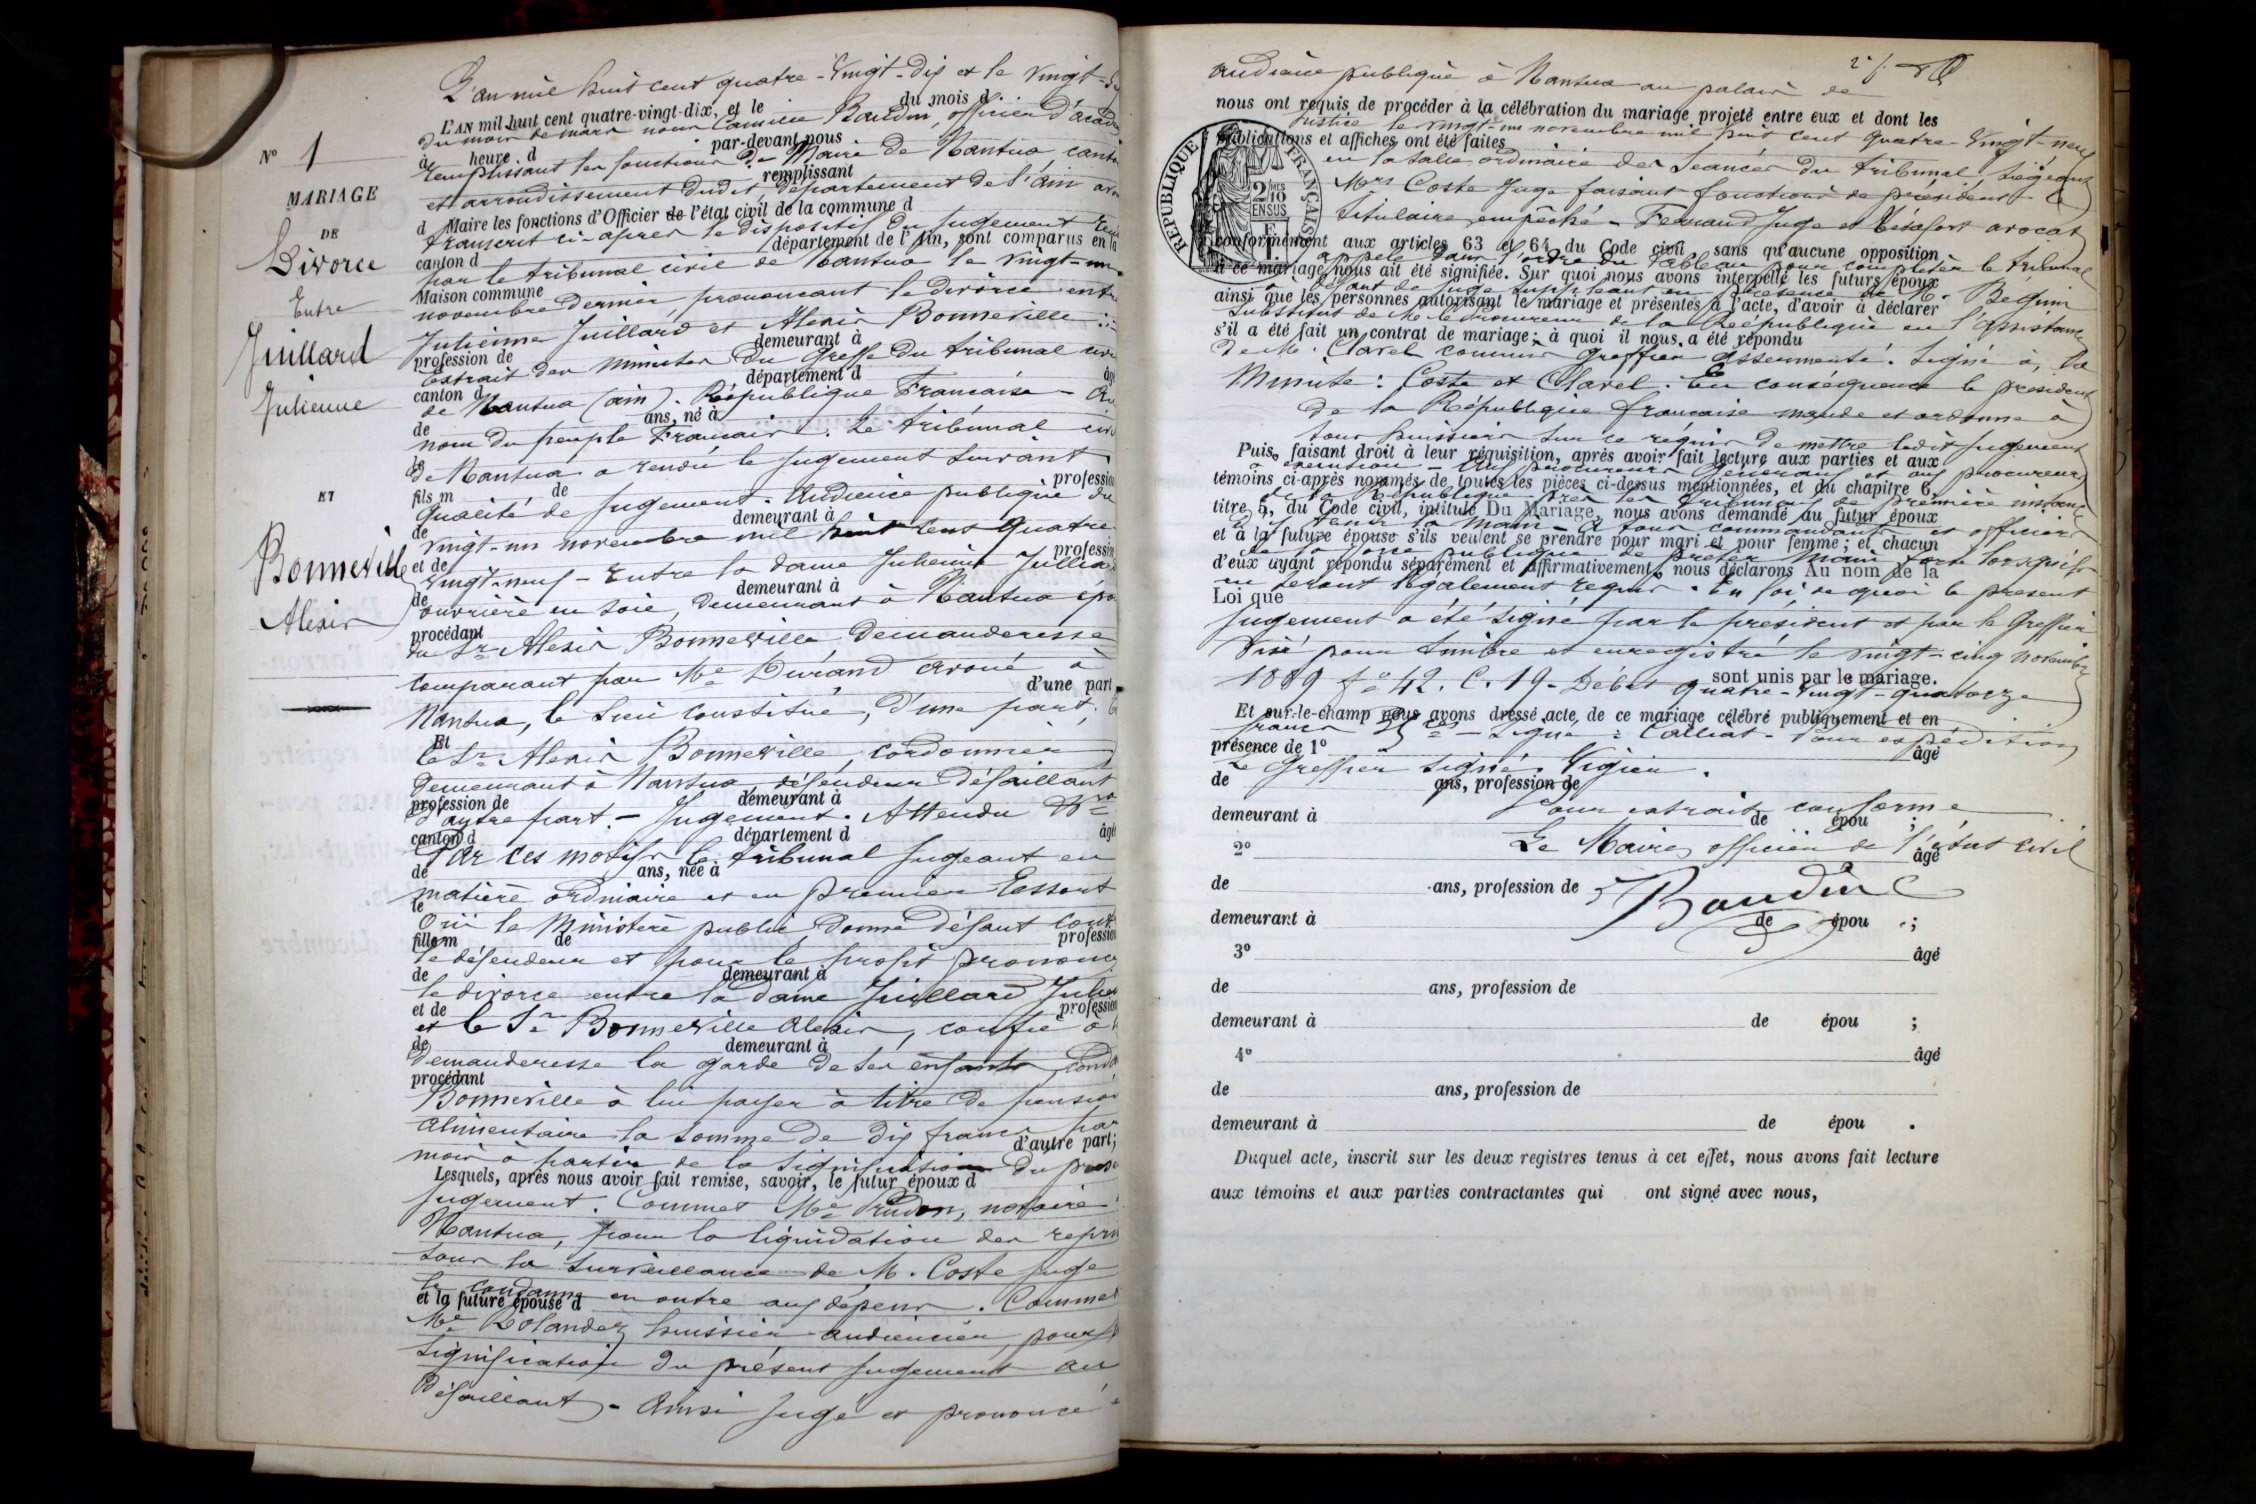 N° 1
MARIAGE
DE
Divorce
Entre
Juillard
Julienne
ET
Bonneville
Alexis
L'an mil huit cent quatre-vingt-dix et le vingt-
L'AN mil huit cent quatre-vingt-dix, et le du mois d
du mois de mars nous Camille Baudin, officier d'acad
à heure d par-devant nous
remplissant les fonctions de Maire de Nantua, canto
remplissant
et arrondissement dudit, département de l'ain avons
d Maire les fonctions d'Officier de l'état civil de la commune d
transcrit ci-après le dispositif du Jugement
canton d département de l'Ain, sont comparus en la
par le tribunal civil de Nantua le vingt-un
Maison commune
novembre dernier prononçant le divorce entre
Julienne Juillard et Alexis Bonneville :
profession de demeurant à
Extrait des minutes du Greffe du tribunal civi
canton d département d âgé
de Nantua (ain). République Française - Au
de ans, né à
nom du peuple Français. Le tribunal civi
le
de Nantua a rendu le jugement suivant
fils m de profession
Qualité de Jugement. Audience publique du
de demeurant à
vingt-un novembre mil huit cent quatre
et de profession
vingt-neuf - Entre la dame Julienne Juillar
de demeurant à
ouvrière en soie, demeurant à Nantua épo
procédant
du Sr Alexis Bonneville demanderesse
comparant par Me Durand avoué à
d'une part
Nantua, le sieu constitué, d'une part,
Et
le Sr Alexis Bonneville, cordonnier
demeurant à Nantua, défendeur défaillant
profession de demeurant à
d'autre part - Jugement. Attendu
canton d département d âgé
Par ces motifs le tribunal jugeant en
de ans, née à
matière ordinaire et en premier ressort
le
Ouï le Ministère public, donne défaut cont
fille m de profession
le défendeur et pour le profit prononce
de demeurant à
le divorce entre la dame Juillard Julien
et de profession
et le Sr Bonneville Alexis, confie à
de demeurant à
demanderesse la garde de ses enfants, conda
procédant
Bonneville à lui payer à titre de pension
alimentaire la somme de dix francs par
d'autre part;
mois à partir de la signification du prése
Lesquels, après nous avoir fait remise, savoir, le futur époux d
Jugement. Commet Me Prudon, notaire
Nantua, pour la liquidation des repris
sous la surveillance de M. Coste juge
le condamne en outre aux dépens. Commet
et la future épouse d
Me Bolandez huissier audiencier, pour
signification du présent jugement au
défaillant - Ainsi jugé et prononcé
audience publique à Nantua au palais de
nous ont requis de procéder à la célébration du mariage projeté entre eux et dont les
justice le vingt-un novembre mil huit cent quatre-vingt-neuf
publications et affiches ont été faites
en la salle ordinaire des Séances du tribunal Siégeant
Mrs Coste Juge faisant fonctions de président - le
titulaire empêché - Fernand Juge et avocat
RÉPUBLIQUE FRANÇAISE
2/10 EN SUS
conformément aux articles 63 et 64 du Code civil, sans qu'aucune opposition
appelé dans l'ordre du tableau pour compléter le tribunal
à ce mariage nous ait été signifiée. Sur quoi nous avons interpellé les futurs époux
à défaut de juge suppléant en présence de M. Béguin
ainsi que les personnes autorisant le mariage et présentes à l'acte, d'avoir à déclarer
substitut de Mr le Procureur de la République en l'assistance
s'il a été fait un contrat de mariage; à quoi il nous a été répondu
de M. Clavel commis Greffier assermenté. Signé à la
Minute: Coste et Clavel. En conséquence le président
de la République française mande et ordonne à
tous huissiers sur ce réquis de mettre ledit jugement
Puis, faisant droit à leur réquisition, après avoir fait lecture aux parties et aux
à exécution - Aux procureurs Généraux et aux procureurs
témoins ci-après nommés de toutes les pièces ci-dessus mentionnées, et du chapitre 6,
de la République près les tribunaux de première instance
titre 5, du Code civil, intitulé Du Mariage, nous avons demandé au futur époux
d'y tenir la main - à tous commandants et officiers
et à la future épouse s'ils veulent se prendre pour mari et pour femme; et chacun
de la force publique de prêter main forte lorsqu'ils
d'eux ayant répondu séparément et affirmativement, nous déclarons Au nom de la
en seront légalement requis. En foi de quoi le présent
Loi que
jugement a été signé par le président et par le Greffier
Visé pour timbre et enregistré le vingt-cinq novembre
sont unis par le mariage.
1889 fo 42. C. 19 - Débet quatre-vingt-quatorze
Et sur-le-champ nous avons dressé acte de ce mariage célébré publiquement et en
francs - Signé : Calliat - Pour expédition
présence de 1° âgé
Le Greffier Signé. Vigier.
de ans, profession de
Pour extrait conforme
demeurant à de épou ;
Le Maire, officier de l'état civil
2° âgé
de ans, profession de
Baudin
demeurant à de épou ;
3° âgé
de ans, profession de
demeurant à de épou ;
4° âgé
de ans, profession de
demeurant à de épou .
Duquel acte, inscrit sur les deux registres tenus à cet effet, nous avons fait lecture
aux témoins et aux parties contractantes qui ont signé avec nous,